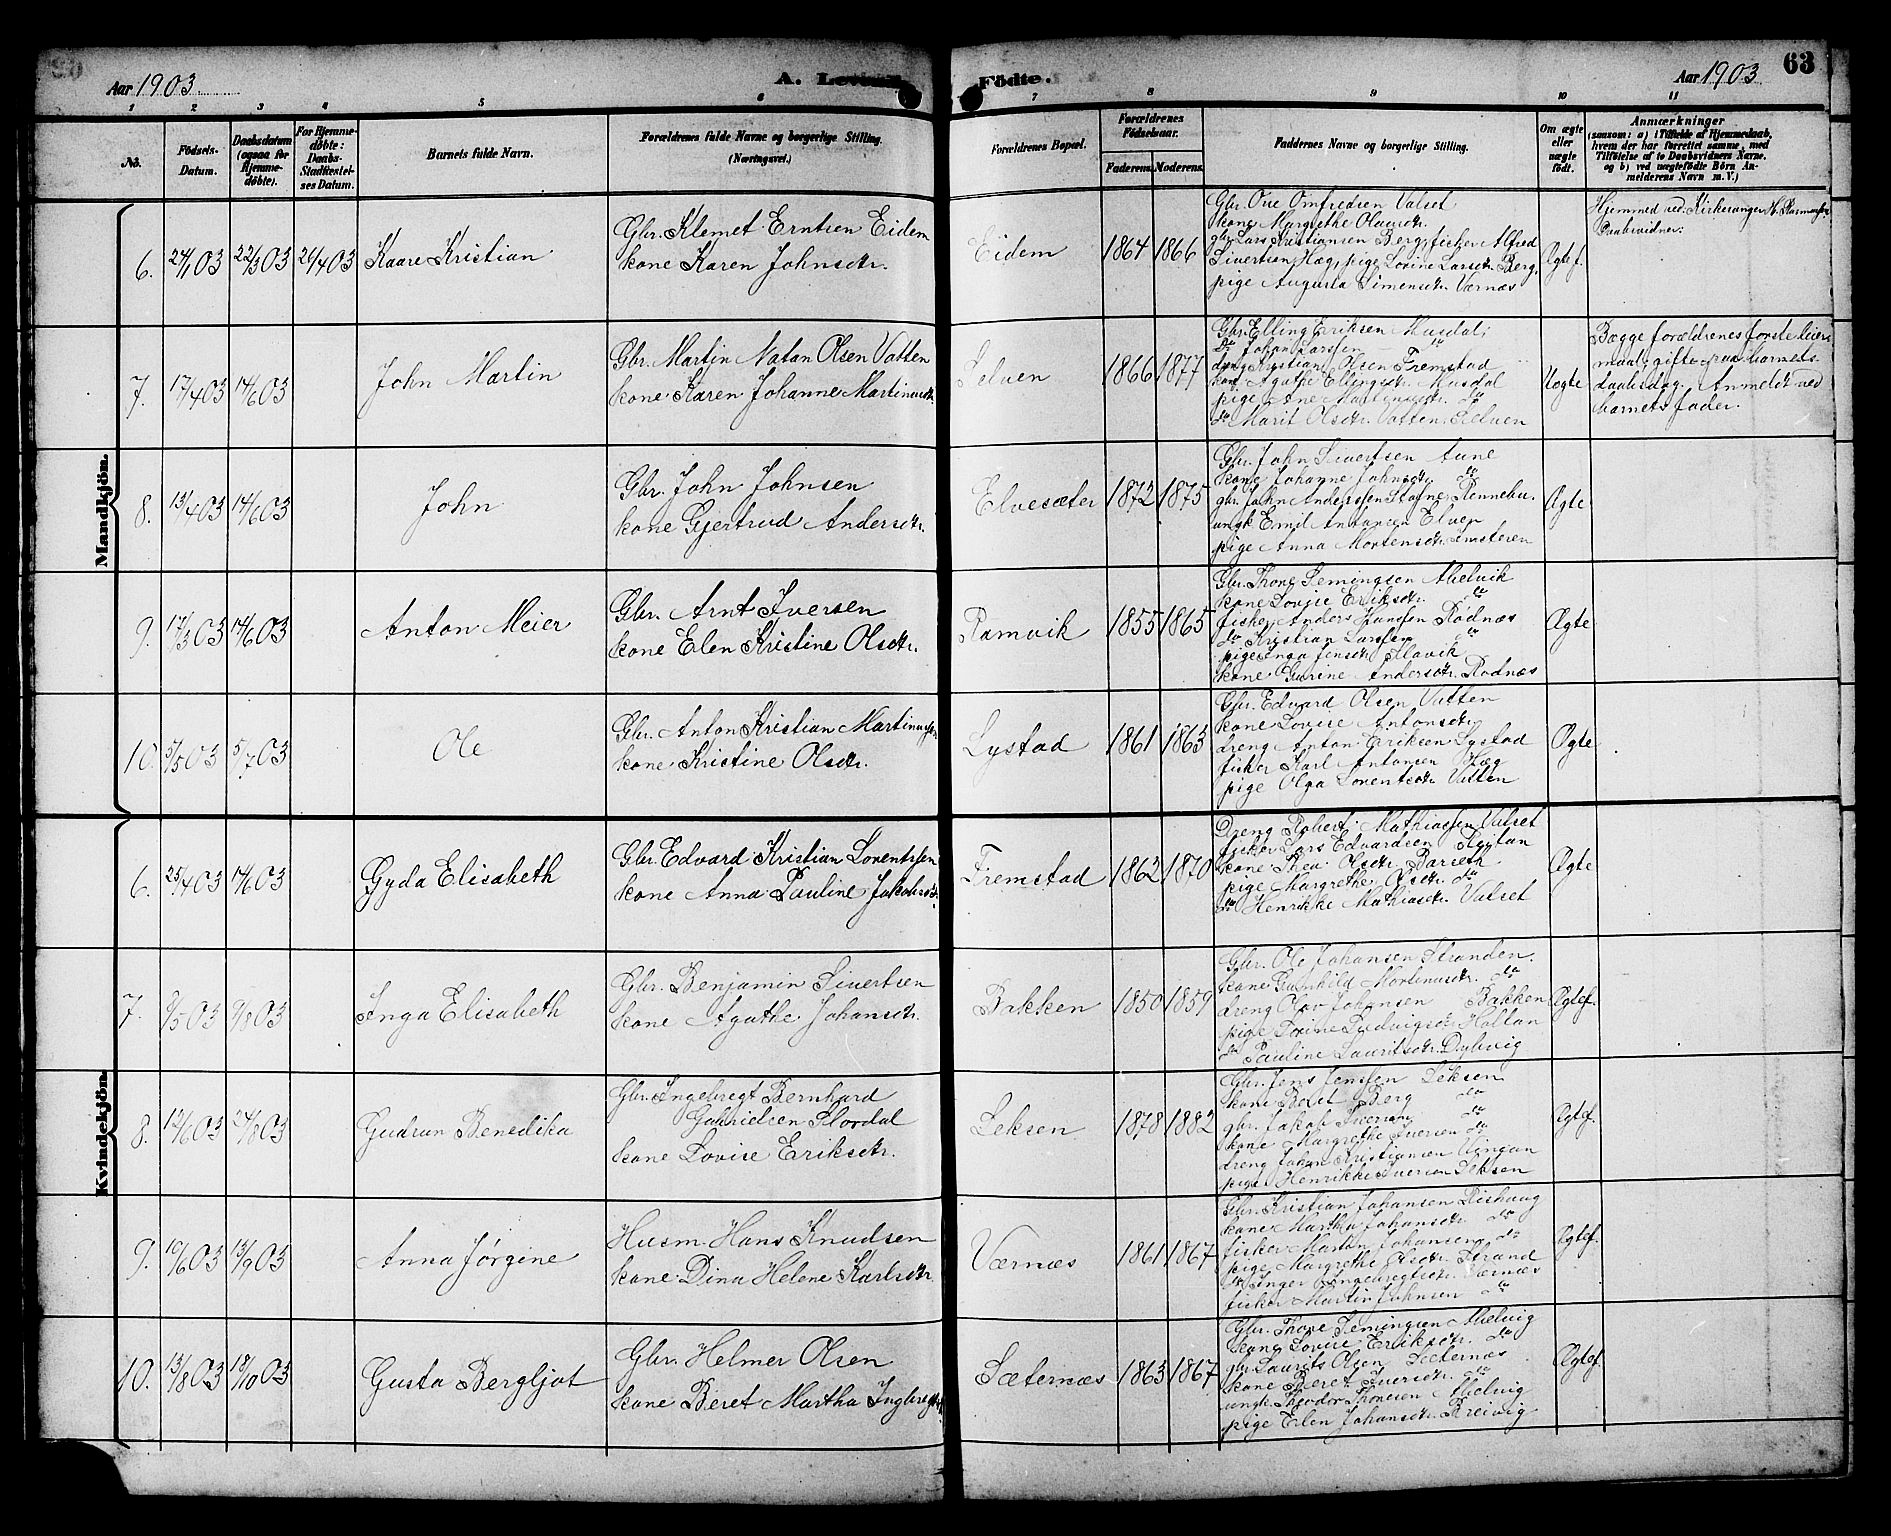 Aar 1903.
A. Levende
Födte.
Aar 1903
63
1 2 3 4 5 6 7 8 9 10 11
No.
Födsels-
Datum.
Daabsdatum
(ogsaa for
Hjemme-
döbte).
For Hjemme-
döbte:
Daabs-
Stadfæstel-
ses Datum.
Barnets fulde Navn.
Forældrenes fulde Navne og borgerlige Stilling.
(Næringsvei.)
Forældrenes Bopæl.
Forældrenes
Födselsaar.
Faderens.
Moderens.
Faddernes Navne og borgerlige Stilling.
Om ægte
eller
uægte
født.
Anmærkninger
(saasom: a) i Tilfælde af Hjemmedaab,
hvem der har forrettet samme, med
Tilföielse af to Daabsvidners Navne,
og b) ved uægtefödte Börn An-
melderens Navn m. V.)
Mandkjön.
6. 24/1 03 22/3 03 26/4 03 Kaare Kristian
Gbr. Klemet Erntsen Eidem
kone Karen Johnsdtr.
Eidem 1864 1866
Gbr. Ove Omfredsen Valset
kone Margrethe Olausdtr.
gbr. Lars Kristiansen Berg, fisker Alfred
Sivertsen Hæg, pige Lovine Larsdtr. Berg,
pige Augusta Simensdtr. Værnæs
Ægtef.
Hjemmed. ved Kirkesanger N. Rasmussen
Daabsvidner:
7. 17/4 03 14/6 03 John Martin
Gbr. Martin Natan Olsen Vatten
kone Karen Johanne Martinusdtr.
Selven 1866 1877
Gbr. Elling Eriksen Musdal;
Do Johan Larssen do
dreng Kristian Olsen Fremstad
kone Agathe Ellingsdtr. Musdal
pige Ane Martinusdtr. do
do Marit Olsdtr. Vatten, Selven
Uægte
Begge forældrenes første leier-
maal, gifte paa barnets
daabsdag. Anmeldt ved
barnets fader.
8. 13/4 03 14/6 03 John
Gbr. John Johnsen
kone Gjertrud Andersdtr.
Elvesæter 1872 1875
Gbr. John Sivertsen Aune
kone Johanne Johnsdtr. do
gbr. John Anderssen Stavne, Rennebu.
ungk. Emil Antonsen Elven
pige Anna Mortensdtr. Imsteren
Ægte
9. 17/3 03 14/6 03 Anton Meier
Gbr. Arnt Iversen
kone Elen Kristine Olsdtr.
Ramvik 1855 1865
Gbr. Thone Semingsen Melvik
kone Lovise Eriksdtr. do
fisker Anders Hanssen Rödnæs
do Kristian Larssen do
pige Inga Jensdtr. Slavik
kone Gurine Andersdtr. Rödnæs
Ægte
10. 5/5 03 5/7 03 Ole
Gbr. Anton Kristian Martinussen
kone Kristine Olsdtr.
Lystad 1861 1863
Gbr. Edvard Olsen Vatten
kone Lovise Antonsdtr.
dreng Anton Eriksen Lystad
fisker Karl Antonsen Hæg
pige Olga Lorentsdtr. Vatten
Ægte
Kvindekjön.
6. 25/4 03 14/6 03 Gyda Elisabeth
Gbr. Edvard Kristian Lorentssen
kone Anna Pauline Jakobsdtr.
Fremstad 1862 1870
Dreng Robert Mathiassen Valset
fisker Lars Edvardsen Reitan
kone Thea Olsdtr. Barseth
pige Margrethe Olsdtr. do
do Henrikke Mathiasdtr. Valset
Ægte
7. 8/5 03 9/8 03 Inga Elisabeth
Gbr. Benjamin Sivertsen
kone Agathe Johansdtr.
Bakken 1850 1859
Gbr. Ole Johansen Stranden.
kone Gunhild Mortinusdtr. do
dreng Olav Johansen Bakken
pige Dorine Ludvigsdtr. Hollan
do Pauline Lauritsdtr. Dybvig
Ægtef.
8. 12/6 03 24/8 03 Gudrun Benedika
Gbr. Ingebregt Bernhard
Gabrielsen Slordal
kone Lovise Eriksdtr.
Leksen 1878 1882
Gbr. Jens Jenssen Leksen
kone Beret Berg do
gbr. Jakob Iversen do
kone Margrethe Iversen do
dreng Johan Kristiansen Vingan
pige Henrikke Iversen Leksen
Ægtef.
9. 10/6 03 13/9 03 Anna Jørgine
Husm. Hans Knudsen
kone Dina Helene Karlsdtr.
Værnæs 1861 1867
Gbr. Kristian Johansen Lishaug
kone Martha Johansdtr. do
fisker Martin Johansen do
pige Margrethe Olsdtr. Strand
do Inger Ingebregtsdtr. Værnæs
fisker Martin Johnsen do
Ægtef.
10. 13/8 03 18/10 03 Gusta Bergljot
Gbr. Helmer Olsen
kone Beret Martha Ingbregtsdtr.
Sæternæs 1863 1867
Gbr. Thone Semingsen Melvig
kone Lovise Eriksdtr. do
gbr. Laurits Olsen Sæternæs
kone Beret Iversdtr. do
ungk. Theodor Thonesen Melvig
pige Elen Johansdtr. Breivig
Ægtef.